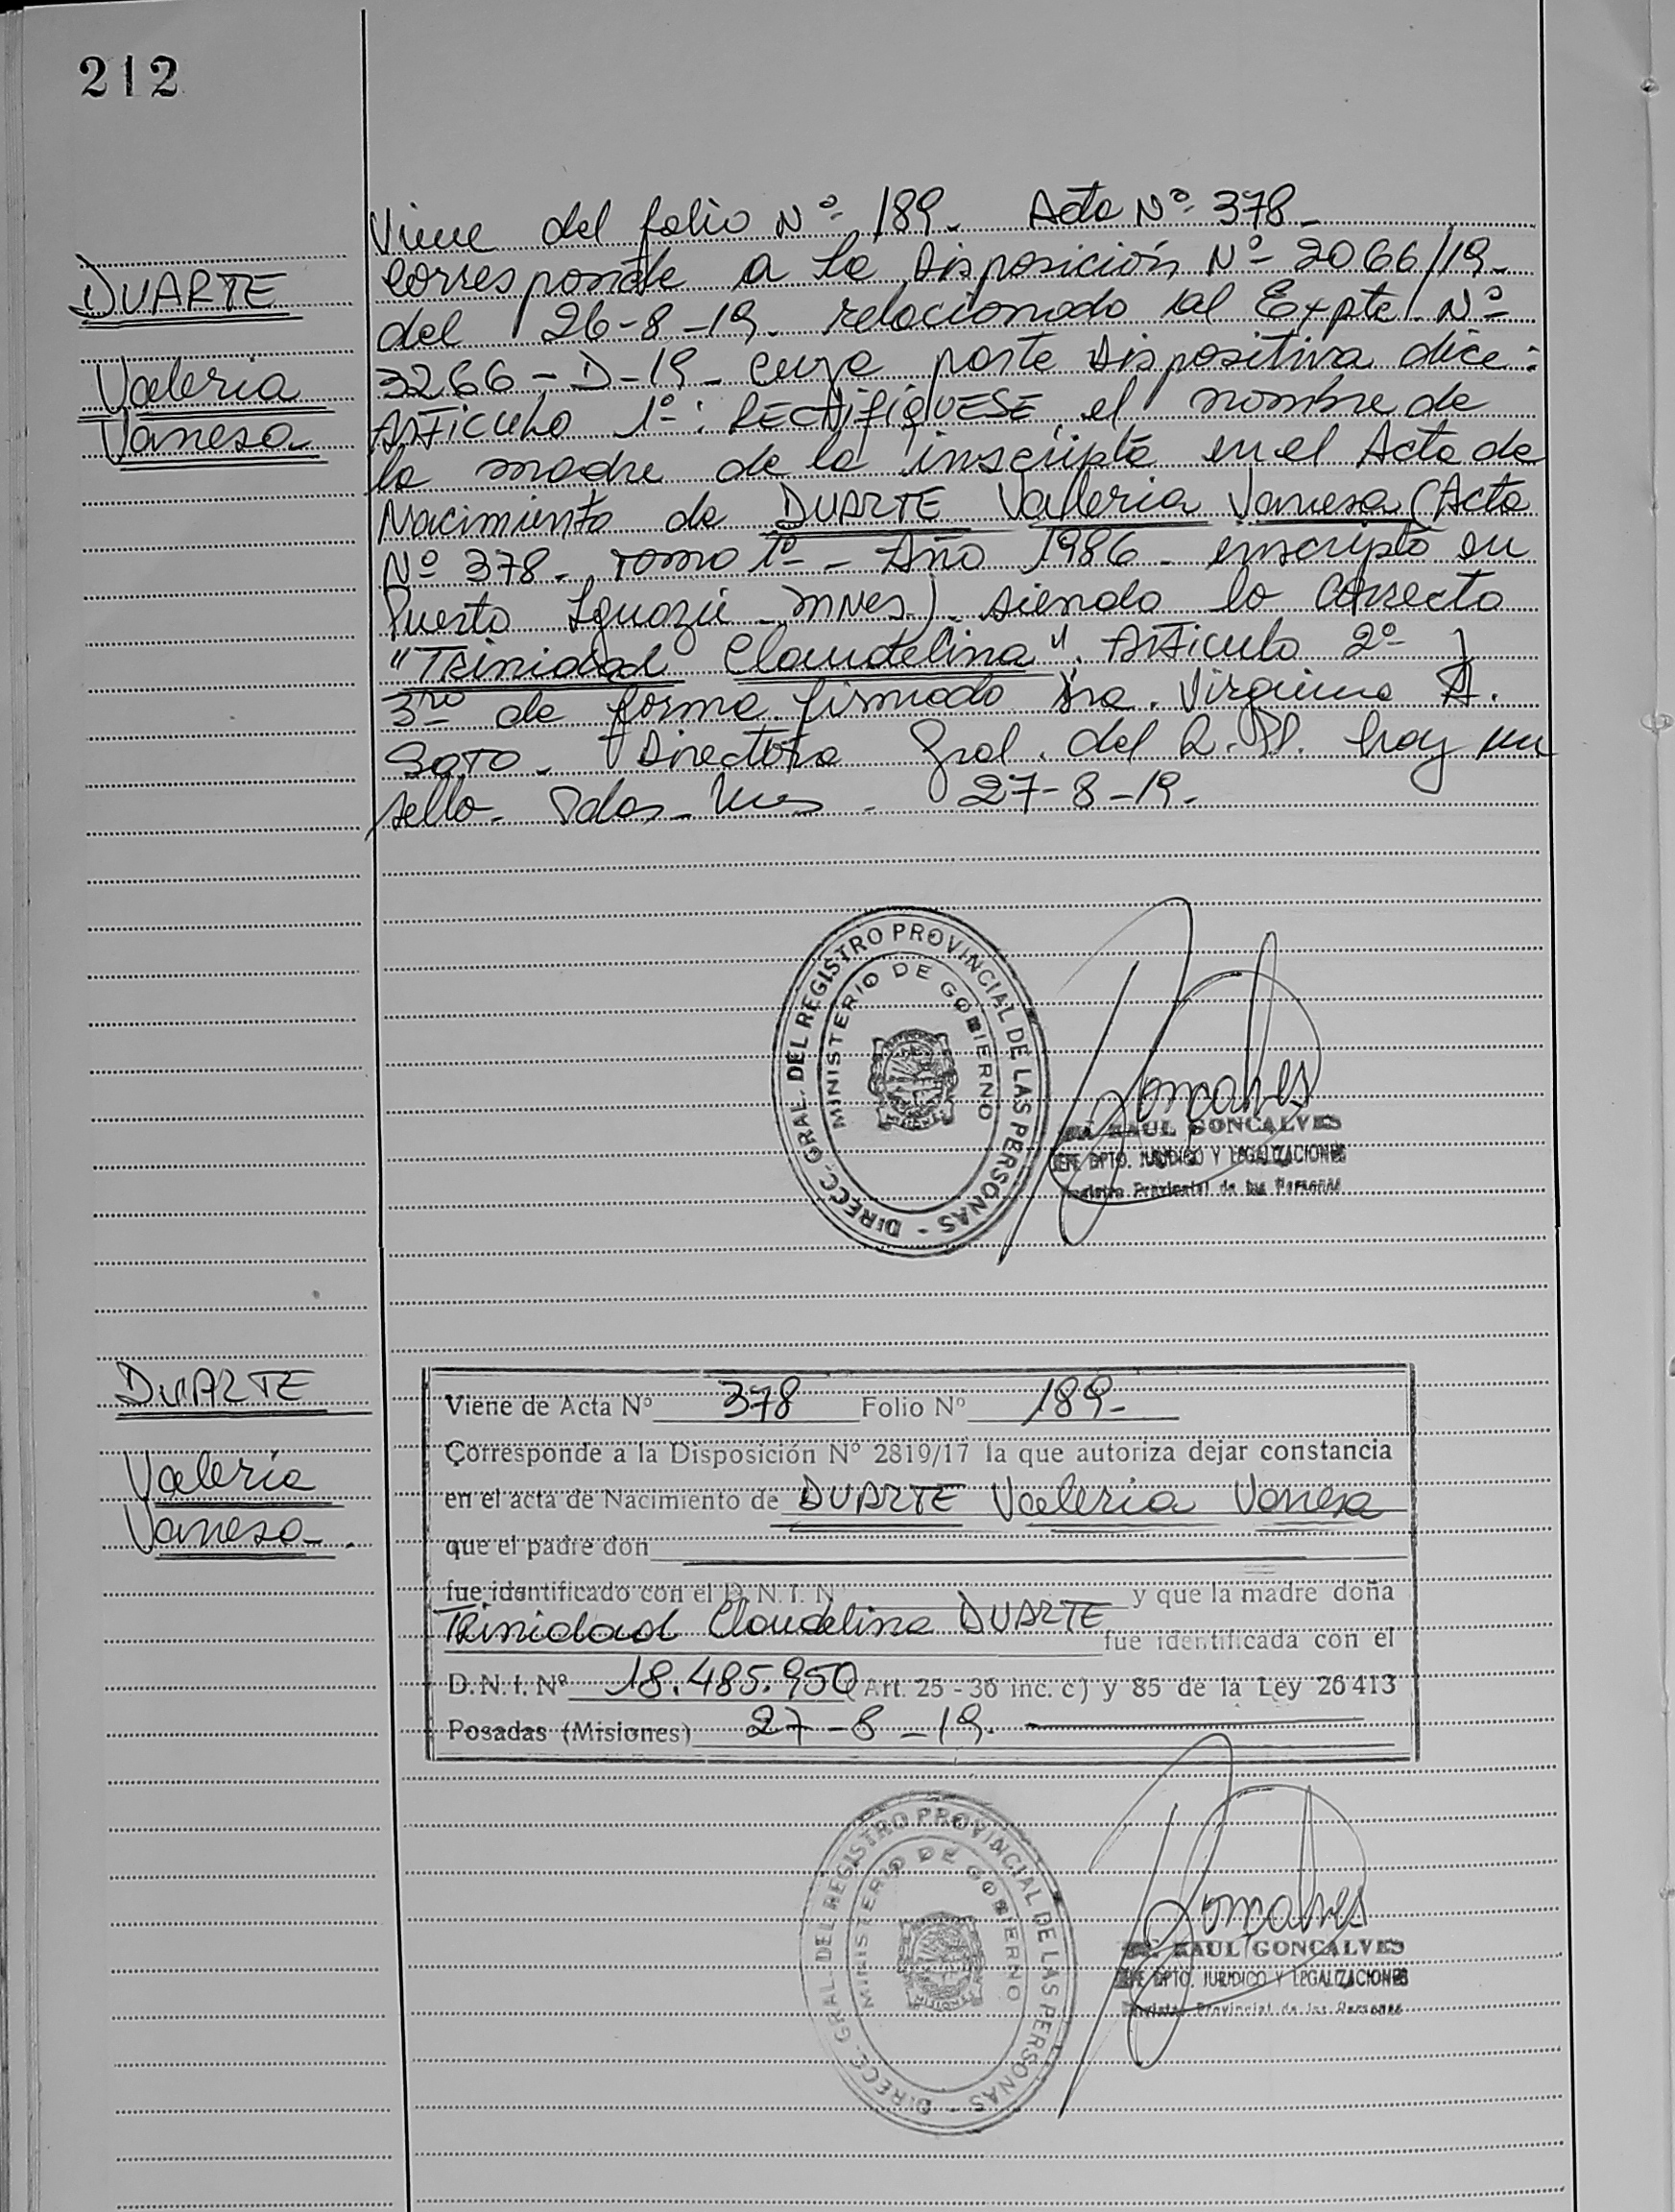 212
DUARTE
Valeria
Vanesa
Viene del folio Nº 189. Acta Nº 378.
corresponde a la Disposición Nº 2066/19.
del 26-8-19. relacionado al Expte. Nº
3266-D-19. cuya parte dispositiva dice:
ARTICULO 1º: RECTIFIQUESE el nombre de
la madre de la inscripta en el Acta de
Nacimiento de DUARTE Valeria Vanesa (Acta
Nº 378. Tomo 1º - Año 1986. inscripto en
Puerto Iguazú Mnes) siendo lo correcto
"Trinidad Claudelina". Articulo 2º y
3ro de forma firmado Dra. Virginia A.
SOTO. Directora Gral. del R.P.P. hay un
sello. Pdas. Mnes. 27-8-19.
DIRECC. GRAL. DEL REGISTRO PROVINCIAL DE LAS PERSONAS -
MINISTERIO DE GOBIERNO
RAUL GONCALVES
JEFE DPTO. JURIDICO Y LEGALIZACIONES
Registro Provincial de las Personas
DUARTE
Valeria
Vanesa.
Viene de Acta Nº 378 Folio Nº 189-
Corresponde a la Disposición Nº 2819/17 la que autoriza dejar constancia
en el acta de Nacimiento de DUARTE Valeria Vanesa
que el padre don
fue identificado con el D. N. I. N y que la madre doña
Trinidad Claudelina DUARTE fue identificada con el
D. N. I. Nº 18.485.950 (Art. 25 - 36 inc. c) y 85 de la Ley 26413
Posadas (Misiones) 27-8-19.
DIRECC. GRAL. DEL REGISTRO PROVINCIAL DE LAS PERSONAS -
MINISTERIO DE GOBIERNO
MISIONES
RAUL GONCALVES
JEFE DPTO. JURIDICO Y LEGALIZACIONES
Registro Provincial de las Personas